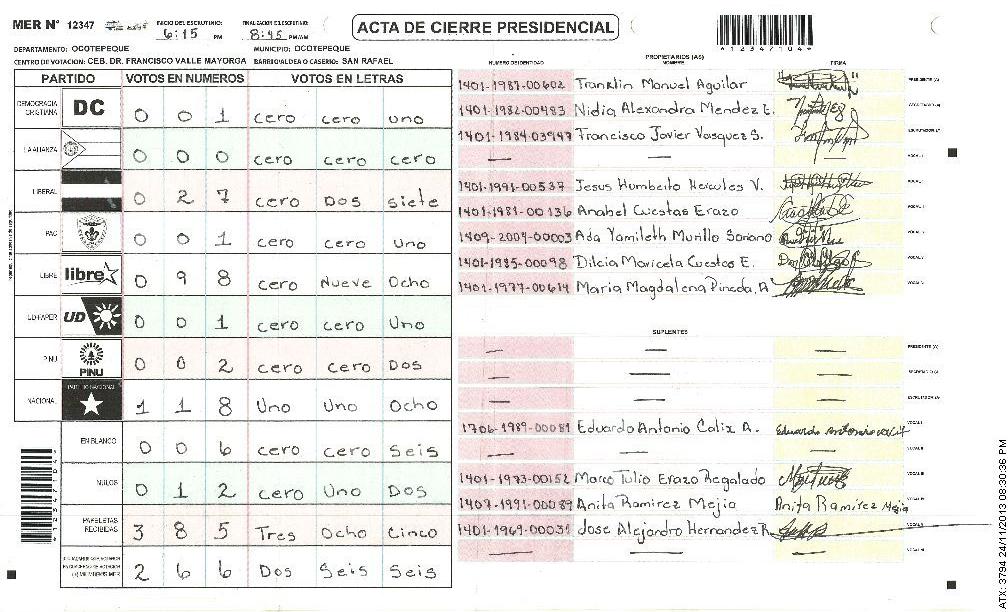 MER N° 12347
INICIO DEL ESCRUTINIO:
6:15 PM
FINALIZACION ESCRUTINIO:
8:45 PM/AM
ACTA DE CIERRE PRESIDENCIAL
*12347104*
DEPARTAMENTO: OCOTEPEQUE MUNICIPIO: OCOTEPEQUE
CENTRO DE VOTACION: CEB. DR. FRANCISCO VALLE MAYORGA BARRIO/ALDEA O CASERIO: SAN RAFAEL
PARTIDO VOTOS EN NUMEROS VOTOS EN LETRAS
DEMOCRACIA CRISTIANA DC 0 0 1 cero cero uno
LA ALIANZA 0 0 0 cero cero cero
LIBERAL 0 2 7 cero Dos siete
PAC 0 0 1 cero cero Uno
LIBRE libre 0 9 8 cero Nueve Ocho
UD-FAPER UD 0 0 1 cero cero Uno
PINU PINU 0 0 2 cero cero Dos
NACIONAL PARTIDO NACIONAL 1 1 8 Uno Uno Ocho
EN BLANCO 0 0 6 cero cero Seis
NULOS 0 1 2 cero Uno Dos
PAPELETAS RECIBIDAS 3 8 5 Tres Ocho Cinco
(+) MIEMBROS MER 2 6 6 Dos Seis Seis
PROPIETARIOS (AS)
NUMERO DE IDENTIDAD NOMBRE FIRMA
1401-1987-00602 Franklin Manuel Aguilar PRESIDENTE (A)
1401-1982-00483 Nidia Alexandra Mendez E. SECRETARIO (A)
1401-1984-03947 Francisco Javier Vasquez S. ESCRUTADOR (A)
— — VOCAL I
1401-1991-00537 Jesus Humberto Hercules V.
1401-1981-00136 Anabel Cuestas Erazo
1409-2009-00003 Ada Yamileth Murillo Soriano
1401-1985-00098 Dilcia Maricela Cuestas E.
1401-1977-00614 Maria Magdalena Pineda A
SUPLENTES
— — — PRESIDENTE (A)
— — — SECRETARIO (A)
— — — ESCRUTADOR (A)
1706-1989-00081 Eduardo Antonio Calix A. VOCAL I
— — — VOCAL II
1401-1973-00152 Marco Tulio Erazo Regalado VOCAL III
1407-1991-00089 Anita Ramirez Mejia Anita Ramirez Mejia
1401-1969-00031 Jose Alejandro Hernandez R.
— — —
*12347104*
ATX: 3794 24/11/2013 08:30:36 PM